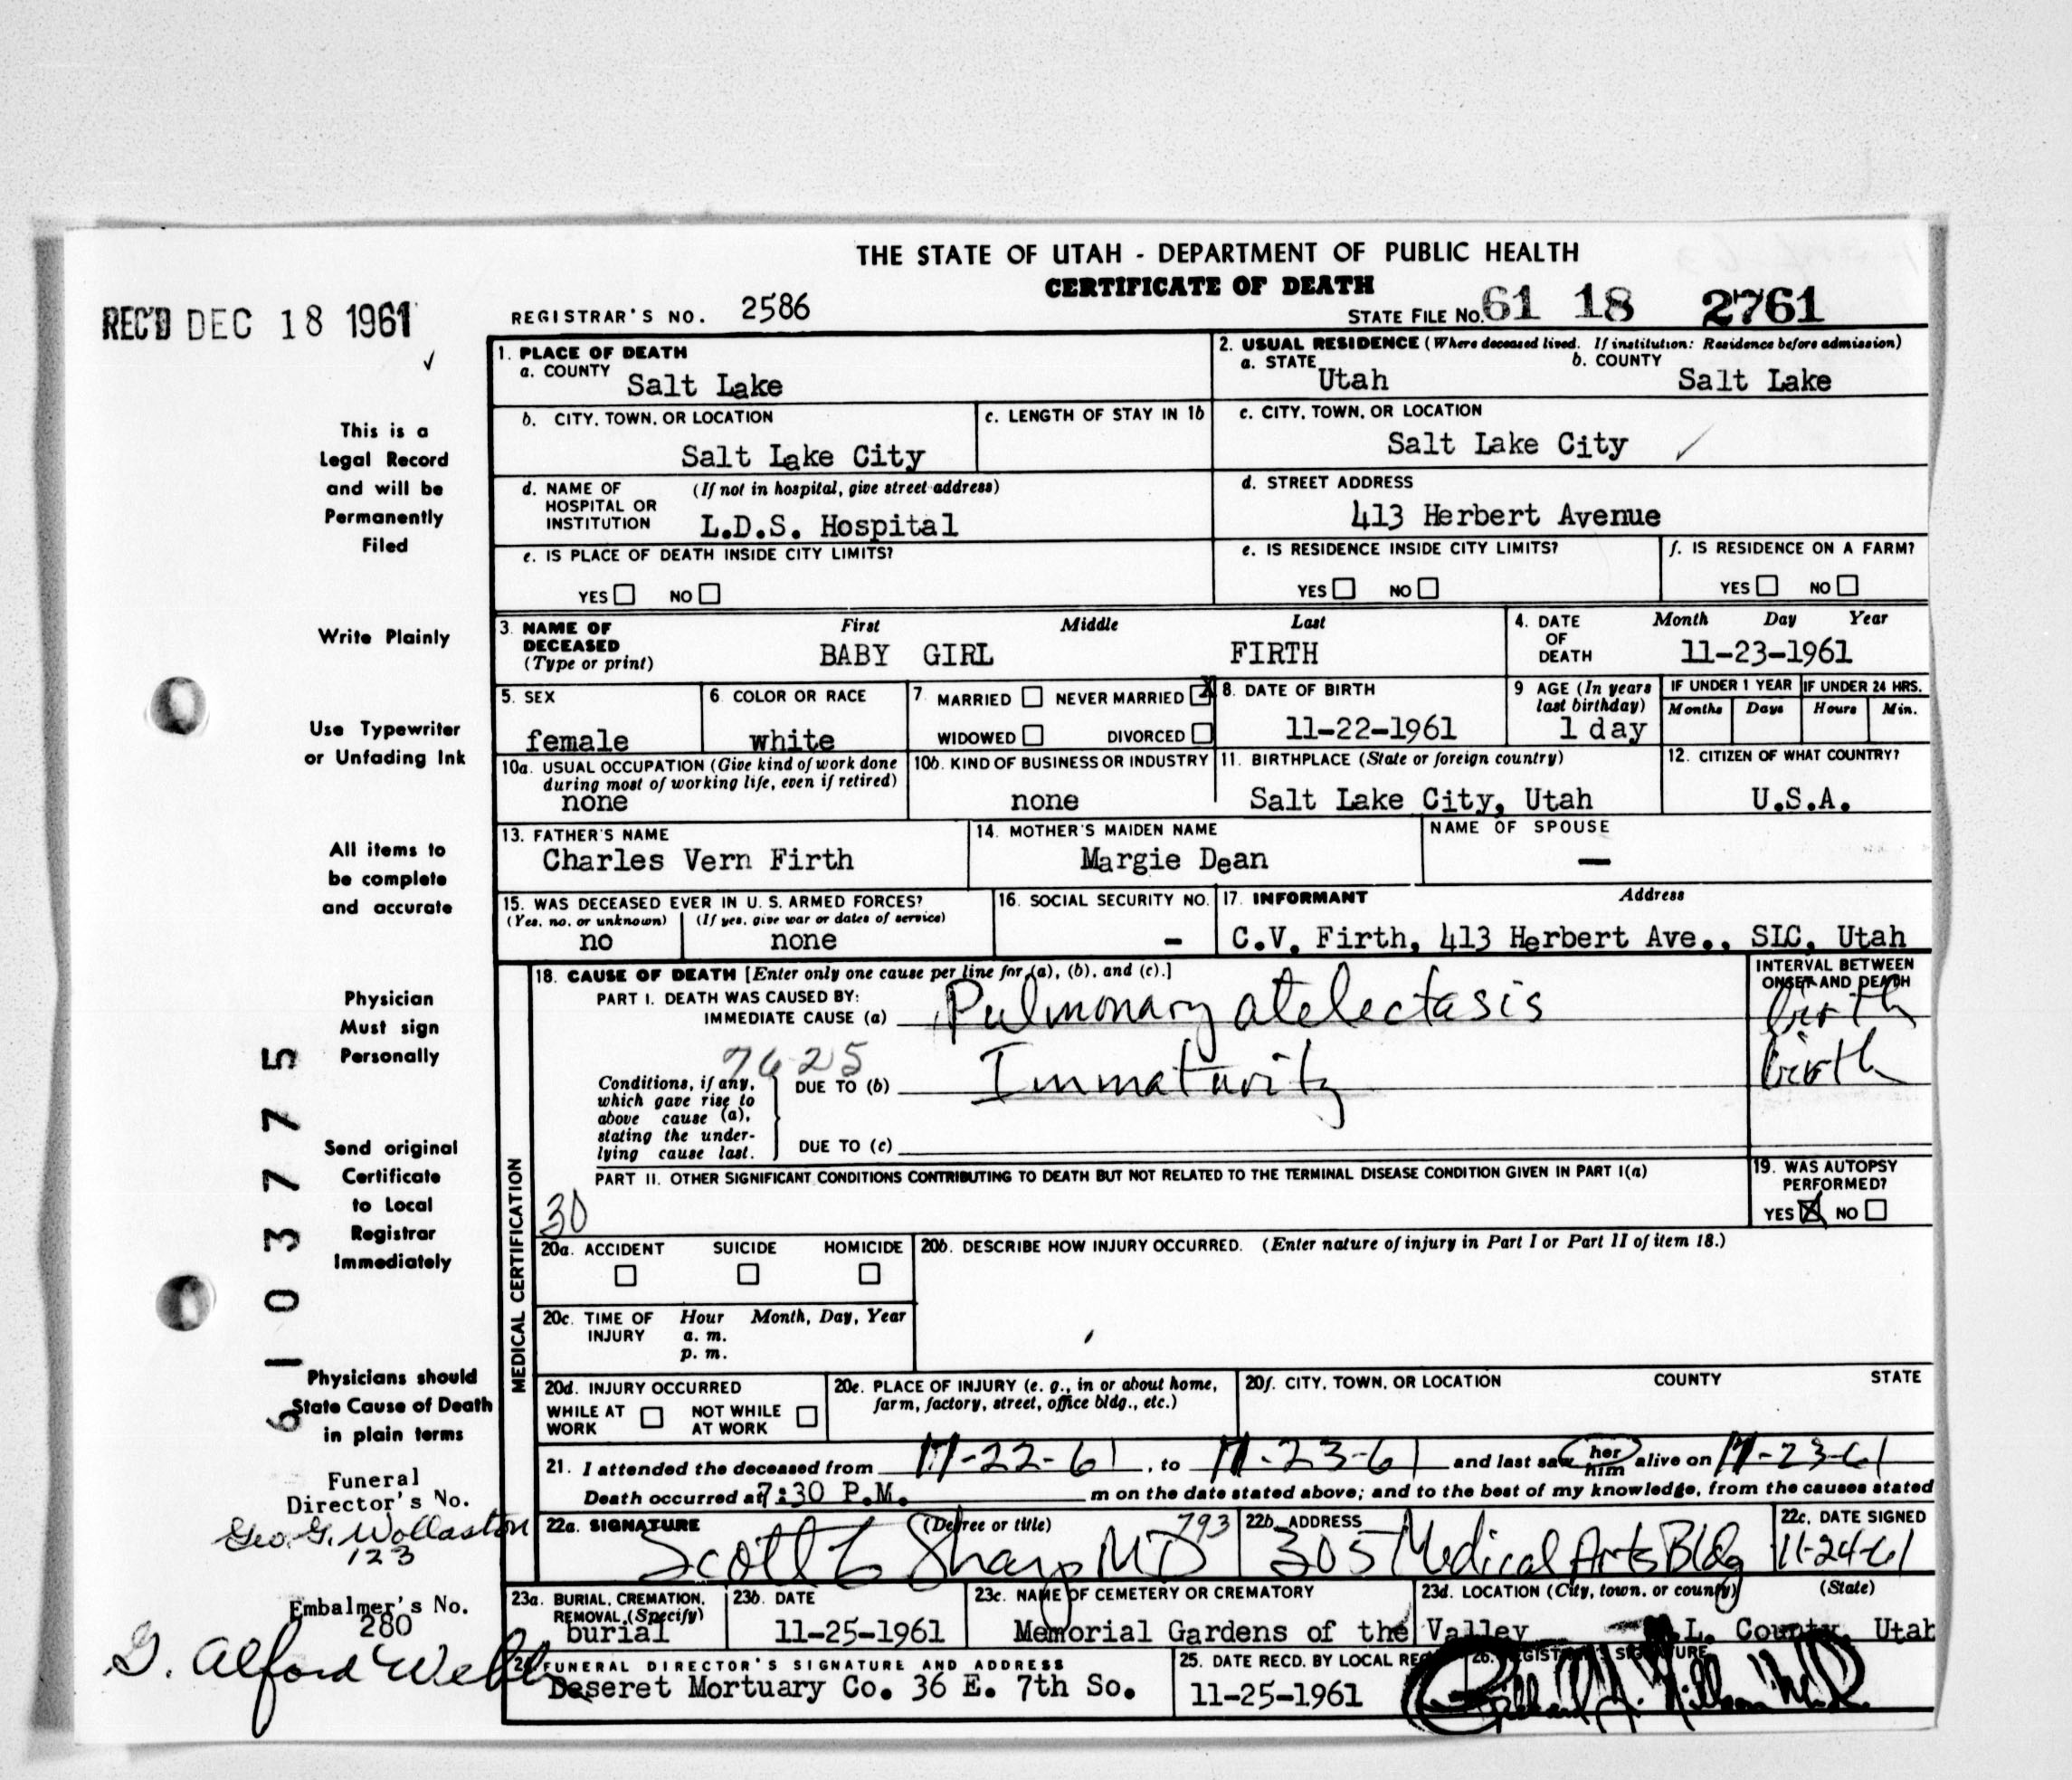 THE STATE OF UTAH - DEPARTMENT OF PUBLIC HEALTH
CERTIFICATE OF DEATH
REC'D DEC 18 1961
REGISTRAR'S NO. 2586
STATE FILE NO. 61 18 2761
This is a
Legal Record
and will be
Permanently
Filed
Write Plainly
Use Typewriter
or Unfading Ink
All items to
be complete
and accurate
Physician
Must sign
Personally
Send original
Certificate
to Local
Registrar
Immediately
Physicians should
State Cause of Death
in plain terms
61037775
Funeral
Director's No.
Geo. G. Wollaston
123
Embalmer's No.
280
G. Alford Webb
1. PLACE OF DEATH
a. COUNTY Salt Lake
2. USUAL RESIDENCE (Where deceased lived. If institution: Residence before admission)
a. STATE Utah b. COUNTY Salt Lake
b. CITY, TOWN, OR LOCATION Salt Lake City
c. LENGTH OF STAY IN 1b
c. CITY, TOWN, OR LOCATION Salt Lake City
d. NAME OF HOSPITAL OR INSTITUTION (If not in hospital, give street address) L.D.S. Hospital
d. STREET ADDRESS 413 Herbert Avenue
e. IS PLACE OF DEATH INSIDE CITY LIMITS?
YES NO
e. IS RESIDENCE INSIDE CITY LIMITS?
YES NO
f. IS RESIDENCE ON A FARM?
YES NO
3. NAME OF DECEASED (Type or print) First Middle Last
BABY GIRL FIRTH
4. DATE OF DEATH Month Day Year
11-23-1961
5. SEX female
6. COLOR OR RACE white
7. MARRIED NEVER MARRIED X
WIDOWED DIVORCED
8. DATE OF BIRTH 11-22-1961
9 AGE (In years last birthday) 1 day
IF UNDER 1 YEAR Months Days
IF UNDER 24 HRS. Hours Min.
10a. USUAL OCCUPATION (Give kind of work done during most of working life, even if retired) none
10b. KIND OF BUSINESS OR INDUSTRY none
11. BIRTHPLACE (State or foreign country) Salt Lake City, Utah
12. CITIZEN OF WHAT COUNTRY? U.S.A.
13. FATHER'S NAME Charles Vern Firth
14. MOTHER'S MAIDEN NAME Margie Dean
NAME OF SPOUSE —
15. WAS DECEASED EVER IN U. S. ARMED FORCES?
(Yes, no, or unknown) no (If yes, give war or dates of service) none
16. SOCIAL SECURITY NO. -
17. INFORMANT Address
C.V. Firth, 413 Herbert Ave., SLC, Utah
MEDICAL CERTIFICATION
18. CAUSE OF DEATH [Enter only one cause per line for (a), (b), and (c).]
INTERVAL BETWEEN ONSET AND DEATH
PART I. DEATH WAS CAUSED BY:
IMMEDIATE CAUSE (a) Pulmonary atelectasis birth
7625
Conditions, if any, which gave rise to above cause (a), stating the underlying cause last.
DUE TO (b) Immaturity birth
DUE TO (c)
PART II. OTHER SIGNIFICANT CONDITIONS CONTRIBUTING TO DEATH BUT NOT RELATED TO THE TERMINAL DISEASE CONDITION GIVEN IN PART I(a)
30
19. WAS AUTOPSY PERFORMED?
YES X NO
20a. ACCIDENT SUICIDE HOMICIDE
20b. DESCRIBE HOW INJURY OCCURRED. (Enter nature of injury in Part I or Part II of item 18.)
20c. TIME OF INJURY Hour a. m. p. m. Month, Day, Year
20d. INJURY OCCURRED
WHILE AT WORK NOT WHILE AT WORK
20e. PLACE OF INJURY (e. g., in or about home, farm, factory, street, office bldg., etc.)
20f. CITY, TOWN, OR LOCATION COUNTY STATE
21. I attended the deceased from 11-22-61, to 11-23-61 and last saw her him alive on 11-23-61
Death occurred at 7:30 P.M. m on the date stated above; and to the best of my knowledge, from the causes stated
22a. SIGNATURE (Degree or title) 793
Scott E Sharp MD
22b. ADDRESS 305 Medical Arts Bldg
22c. DATE SIGNED 11-24-61
23a. BURIAL, CREMATION, REMOVAL (Specify) burial
23b. DATE 11-25-1961
23c. NAME OF CEMETERY OR CREMATORY Memorial Gardens of the Valley
23d. LOCATION (City, town, or county) (State)
L. County, Utah
FUNERAL DIRECTOR'S SIGNATURE AND ADDRESS
Deseret Mortuary Co. 36 E. 7th So.
25. DATE RECD. BY LOCAL REG.
11-25-1961
26. REGISTRAR'S SIGNATURE